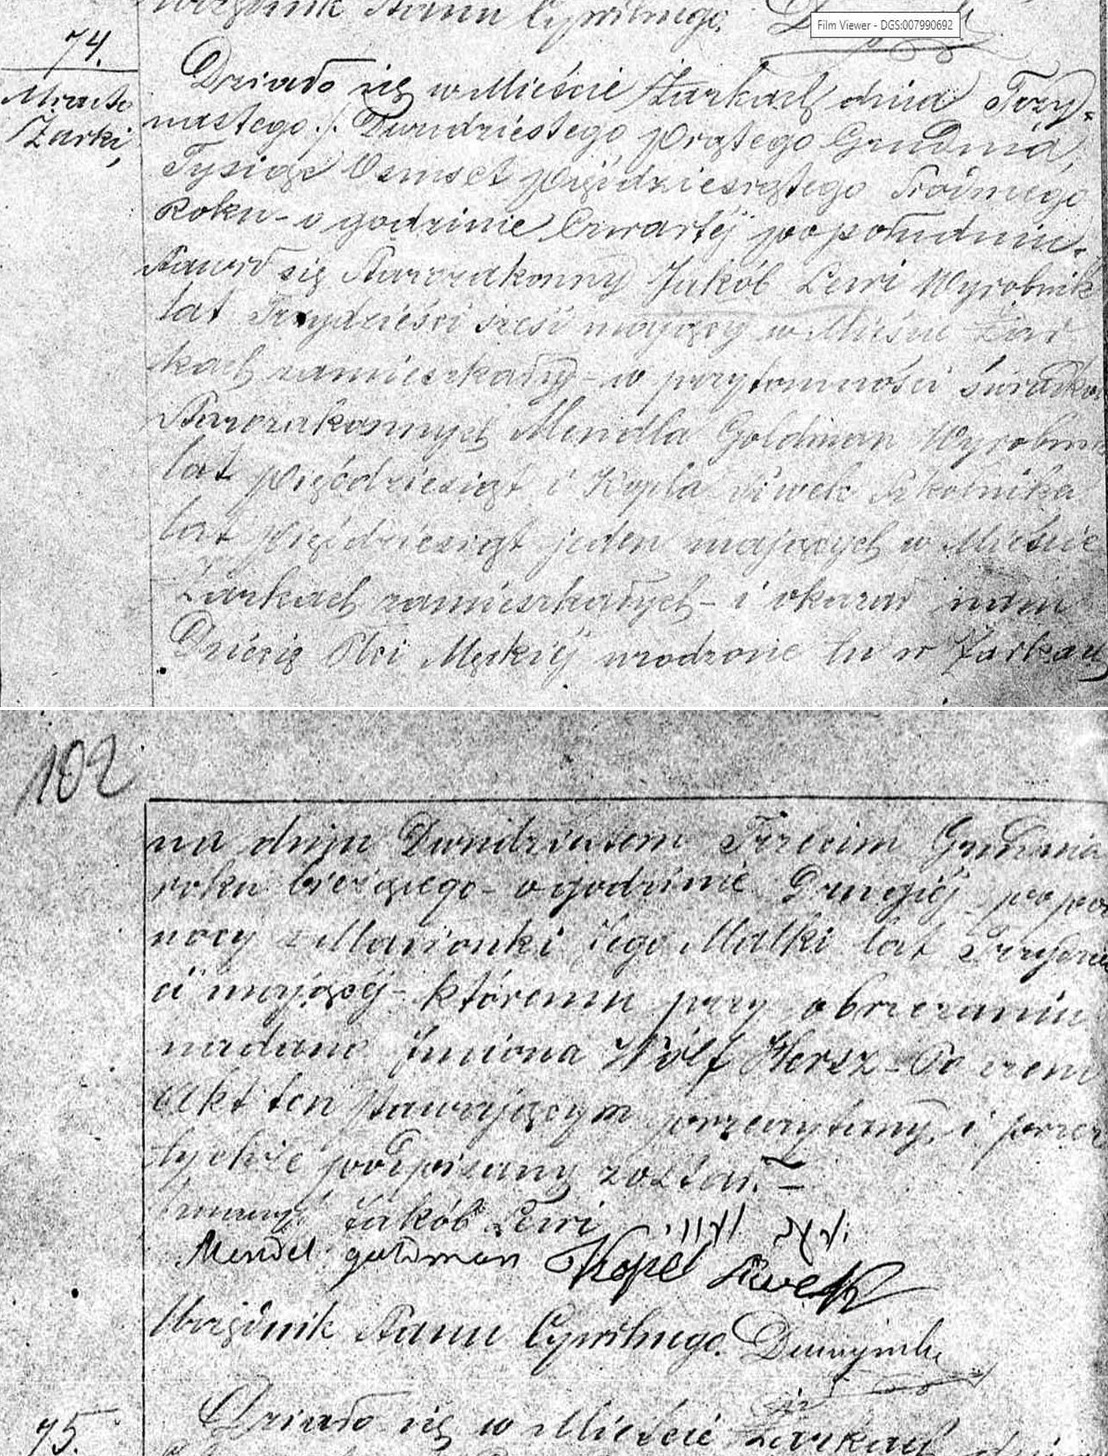 Urzędnik Stanu Cywilnego.
Film Viewer - DGS:007990692
74.
Miasto
Żarki,
Działo się w Mieście Żarkach dnia Trzy=
nastego ./. Dwudziestego piątego Grudnia,
Tysiąc Osmset pięćdziesiątego Siódmego
Roku - o godzinie Czwartéj po południu.
Stawił się Starozakonny Jakób Lewi Wyrobnik
lat Trzydzieści sześć mający w Mieście Żar
kach zamieszkały - w przytomności świadków
Starozakonnych Mendla Goldman Wyrobnika
lat pięćdziesiąt i Kopla Siwek Szkolnika
lat pięćdziesiąt jeden mających w Mieście
Żarkach zamieszkałych - i okazał nam
Dziecię Płci Męzkiéj urodzone tu w Żarkach
102
na dniu Dwudziestem Trzecim Grudnia
roku bieżącego - o godzinie Drugiéj po pół
nocy z Małżonki Jego Malki lat Trzydzieś
ci mającéj - któremu przy obrzezaniu
nadano Imiona Wolf Hersz - Po czem
Akt ten stawającym przeczytany, i przez
tychże podpisany został. -
Jakób Lewi
Mendel goldman Kopel Siwek
Urzędnik Stanu Cywilnego.
75.
Działo się w Mieście Żarkach